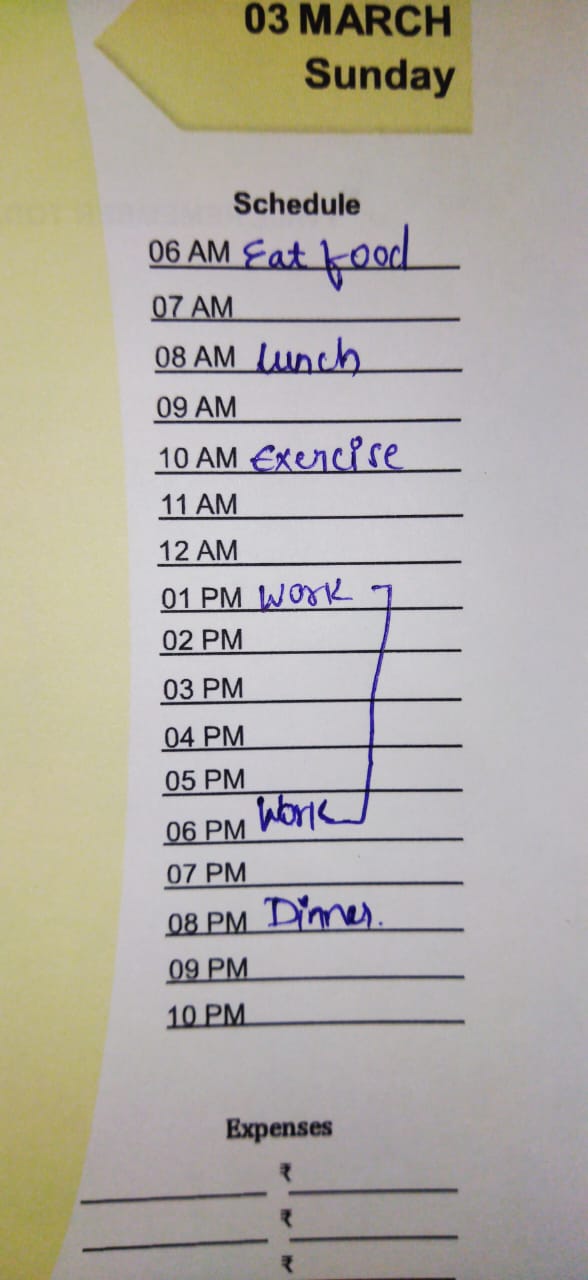 03 MARCH
Sunday
Schedule
06 AM Eat food
07 AM
08 AM Lunch
09 AM
10 AM Exercise
11 AM
12 AM
01 PM Work
02 PM
03 PM
04 PM
05 PM
06 PM Work
07 PM
08 PM Dinner.
09 PM
10 PM
Expenses
₹
₹
₹